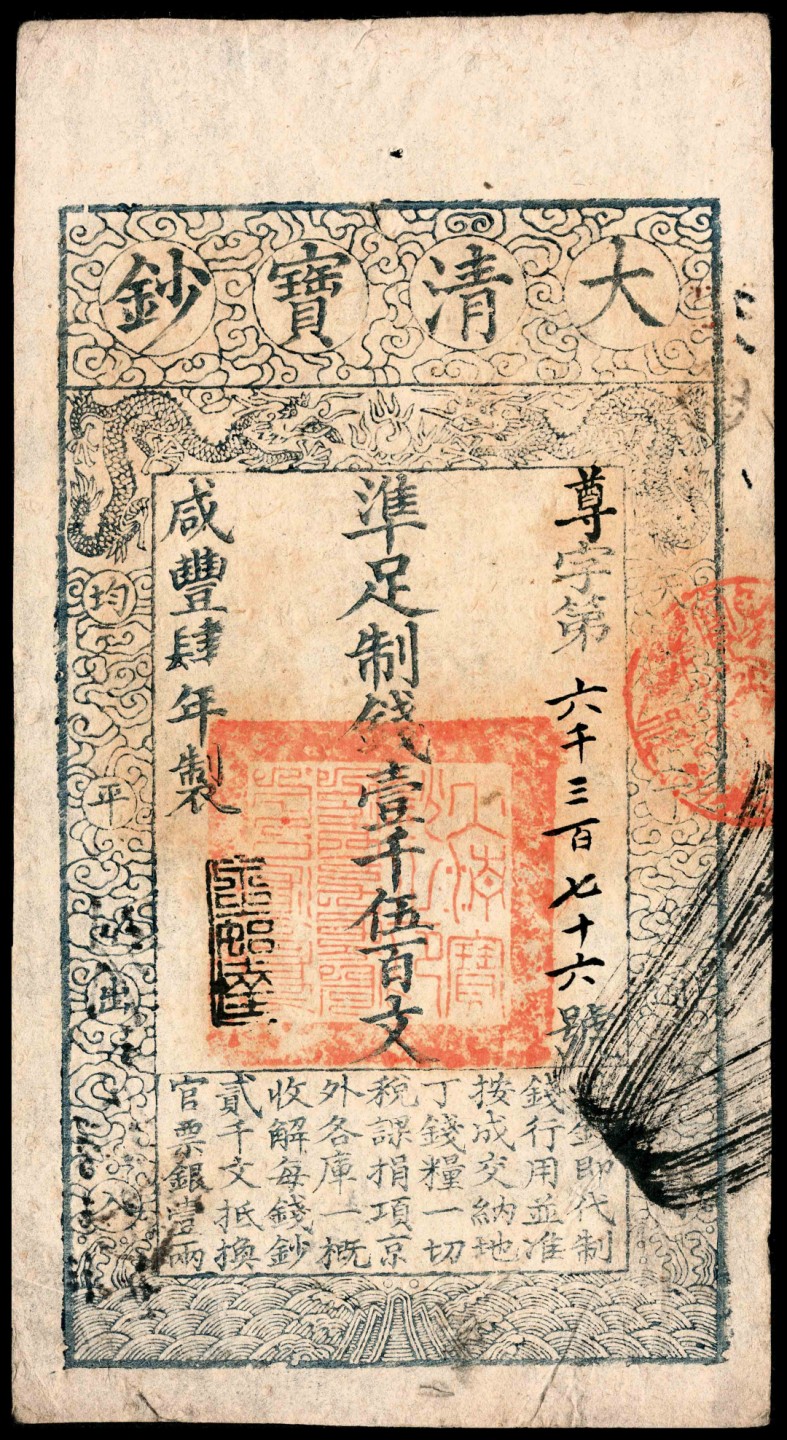 大清寶鈔
天
尊字第六千三百七十六號
準足制錢壹千伍百文
咸豐肆年製
鈔即代制
錢行用並准
按成交納地
丁錢糧一切
稅課捐項京
外各庫一概
收解每錢鈔
貳千文抵換
官票銀壹兩
均平出入